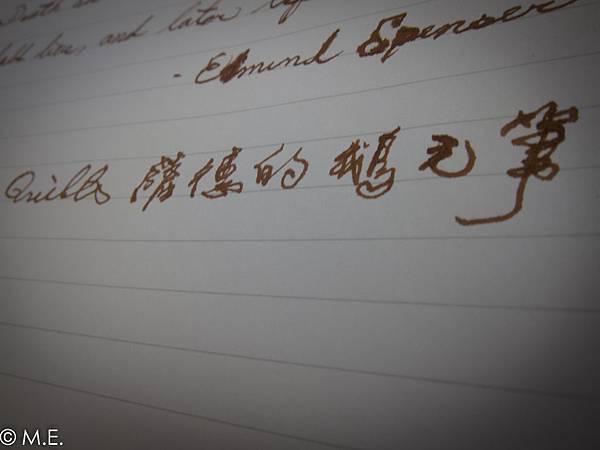 Death
live, and later
- Edmund Spenser
Quills 薩德的鵝毛筆
© M.E.